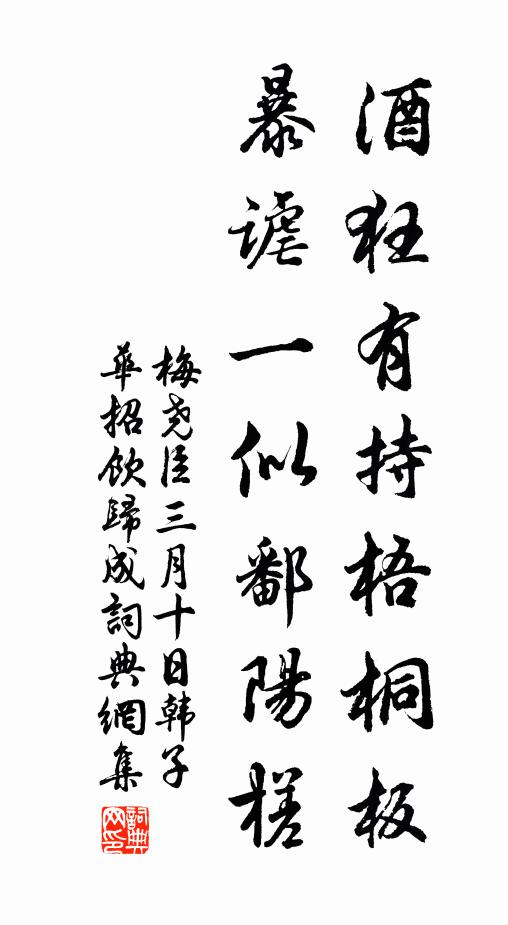 酒狂有持梧桐板
暴謔一似鄱陽槎
梅尧臣三月十日韩子
華招飲歸成詞典網集
詞典
网印